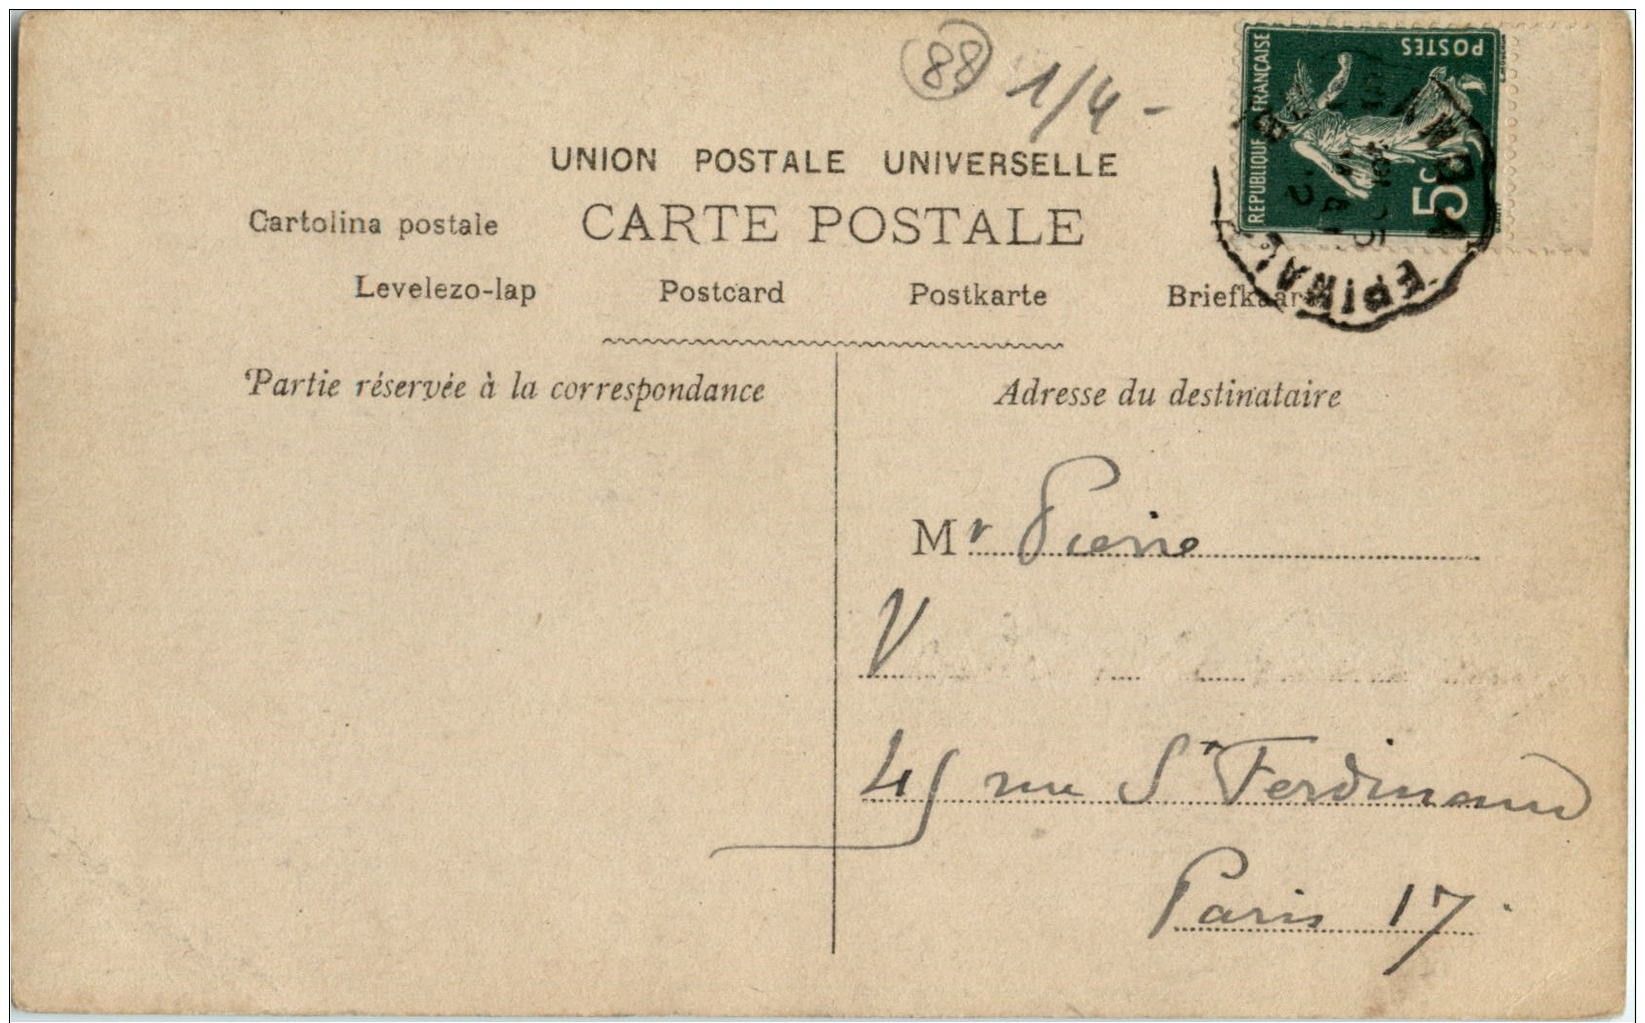 88 1/4 -
POSTES
REPUBLIQUE FRANÇAISE
5c
EPINAL
UNION POSTALE UNIVERSELLE
Cartolina postale CARTE POSTALE
Levelezo-lap Postcard Postkarte Briefkaart
Partie réservée à la correspondance
Adresse du destinataire
Mr Pierre
V
45 rue St Ferdinand
Paris 17.